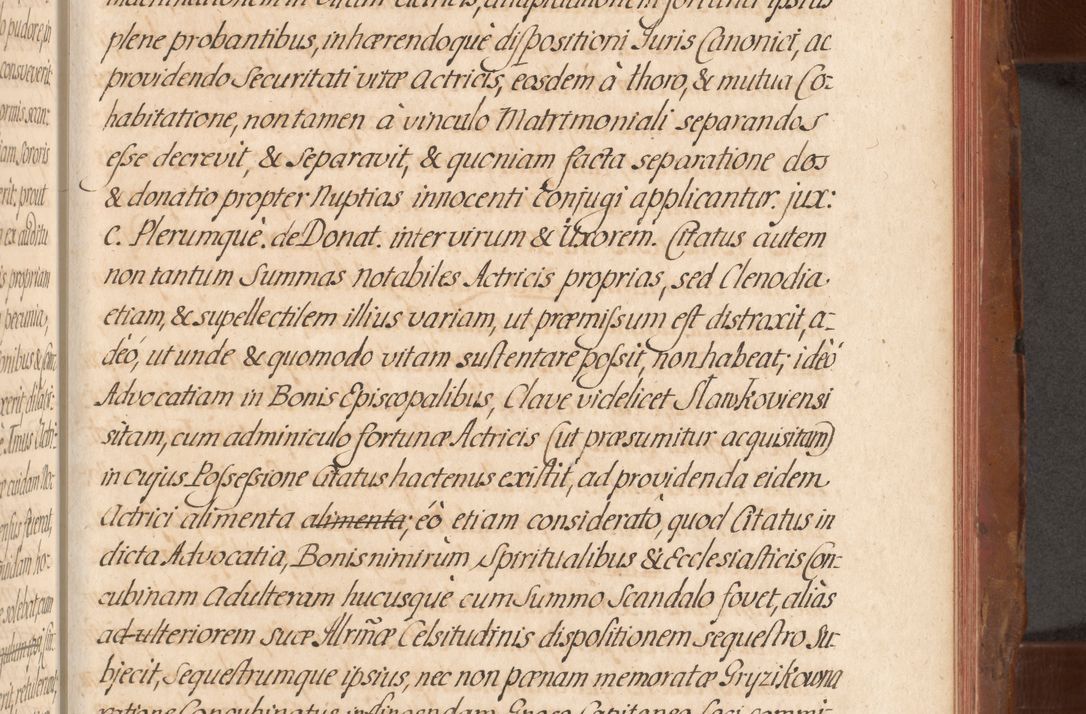 plene probantibus, inhærendoquè dispositioni Juris Canonici, ac
providendo Securitati vitæ Actricis, easdem à thoro, & mutua Co-
habitatione, non tamen à vinculo Matrimoniali separandos
esse decrevit, & separavit, & quoniam facta separatione dos
& donatio propter Nuptias innocenti Conjugi applicantur. jux:
c. Plerumquè. de Donat. inter virum & Uxorem. Citatus autem
non tantum Summas notabiles Actricis proprias, sed Clenodia
etiam, & supellectilem illius variam, ut præmissum est distraxit, a-
deó, ut unde & quomodo vitam sustentare possit, non habeat; ideò
Advocatiam in Bonis Episcopalibus, Clave videlicet Slawkoviensi
sitam, cum adminiculo fortunæ Actricis (ut præsumitur acquisitam)
in cujus Possessione Citatus hactenus exístit, ad providenda eidem
Actrici alimenta alimenta; éò etiam considerato, quod Citatus in
dicta Advocatia, Bonis nimirùm Spiritualibus & Ecclesiasticis Con-
cubinam Adulteram hucusquè cum Summo Scandalo fovet, aliàs
ad ulteriorem suæ Illrmæ Celsitudinis dispositionem sequestro su-
bjecit, Sequestrumque ipsius, nec non pænam memoratæ Gryzikowna